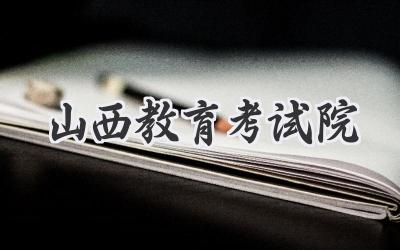 山西教育考试院